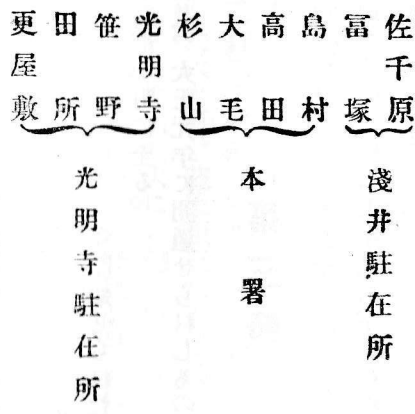 佐千原
冨塚
淺井駐在所
島村
高田
大毛
杉山
本署
光明寺
笹野
田所
更屋敷
光明寺駐在所